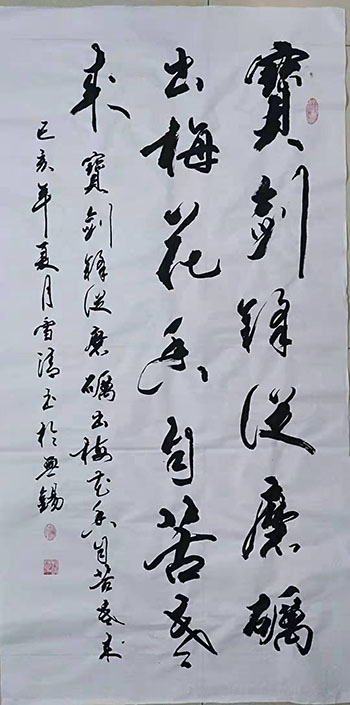 寶劍鋒從磨礪
出梅花香自苦寒
来
寶劍鋒從磨礪出梅花香自苦寒来
己亥年夏月雪清书於無錫